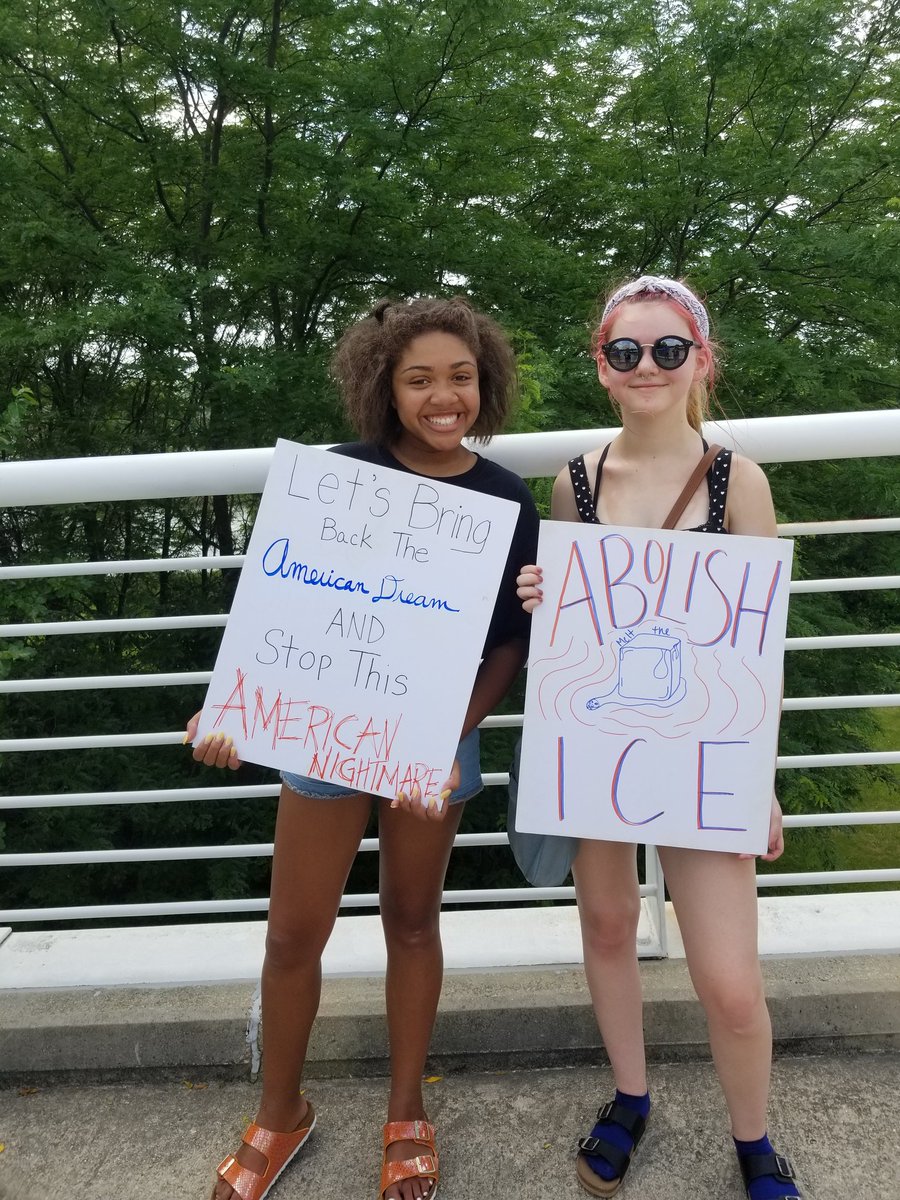 Let's Bring
Back The
American Dream
AND
Stop This
AMERICAN
NIGHTMARE
ABOLISH
Melt the
ICE